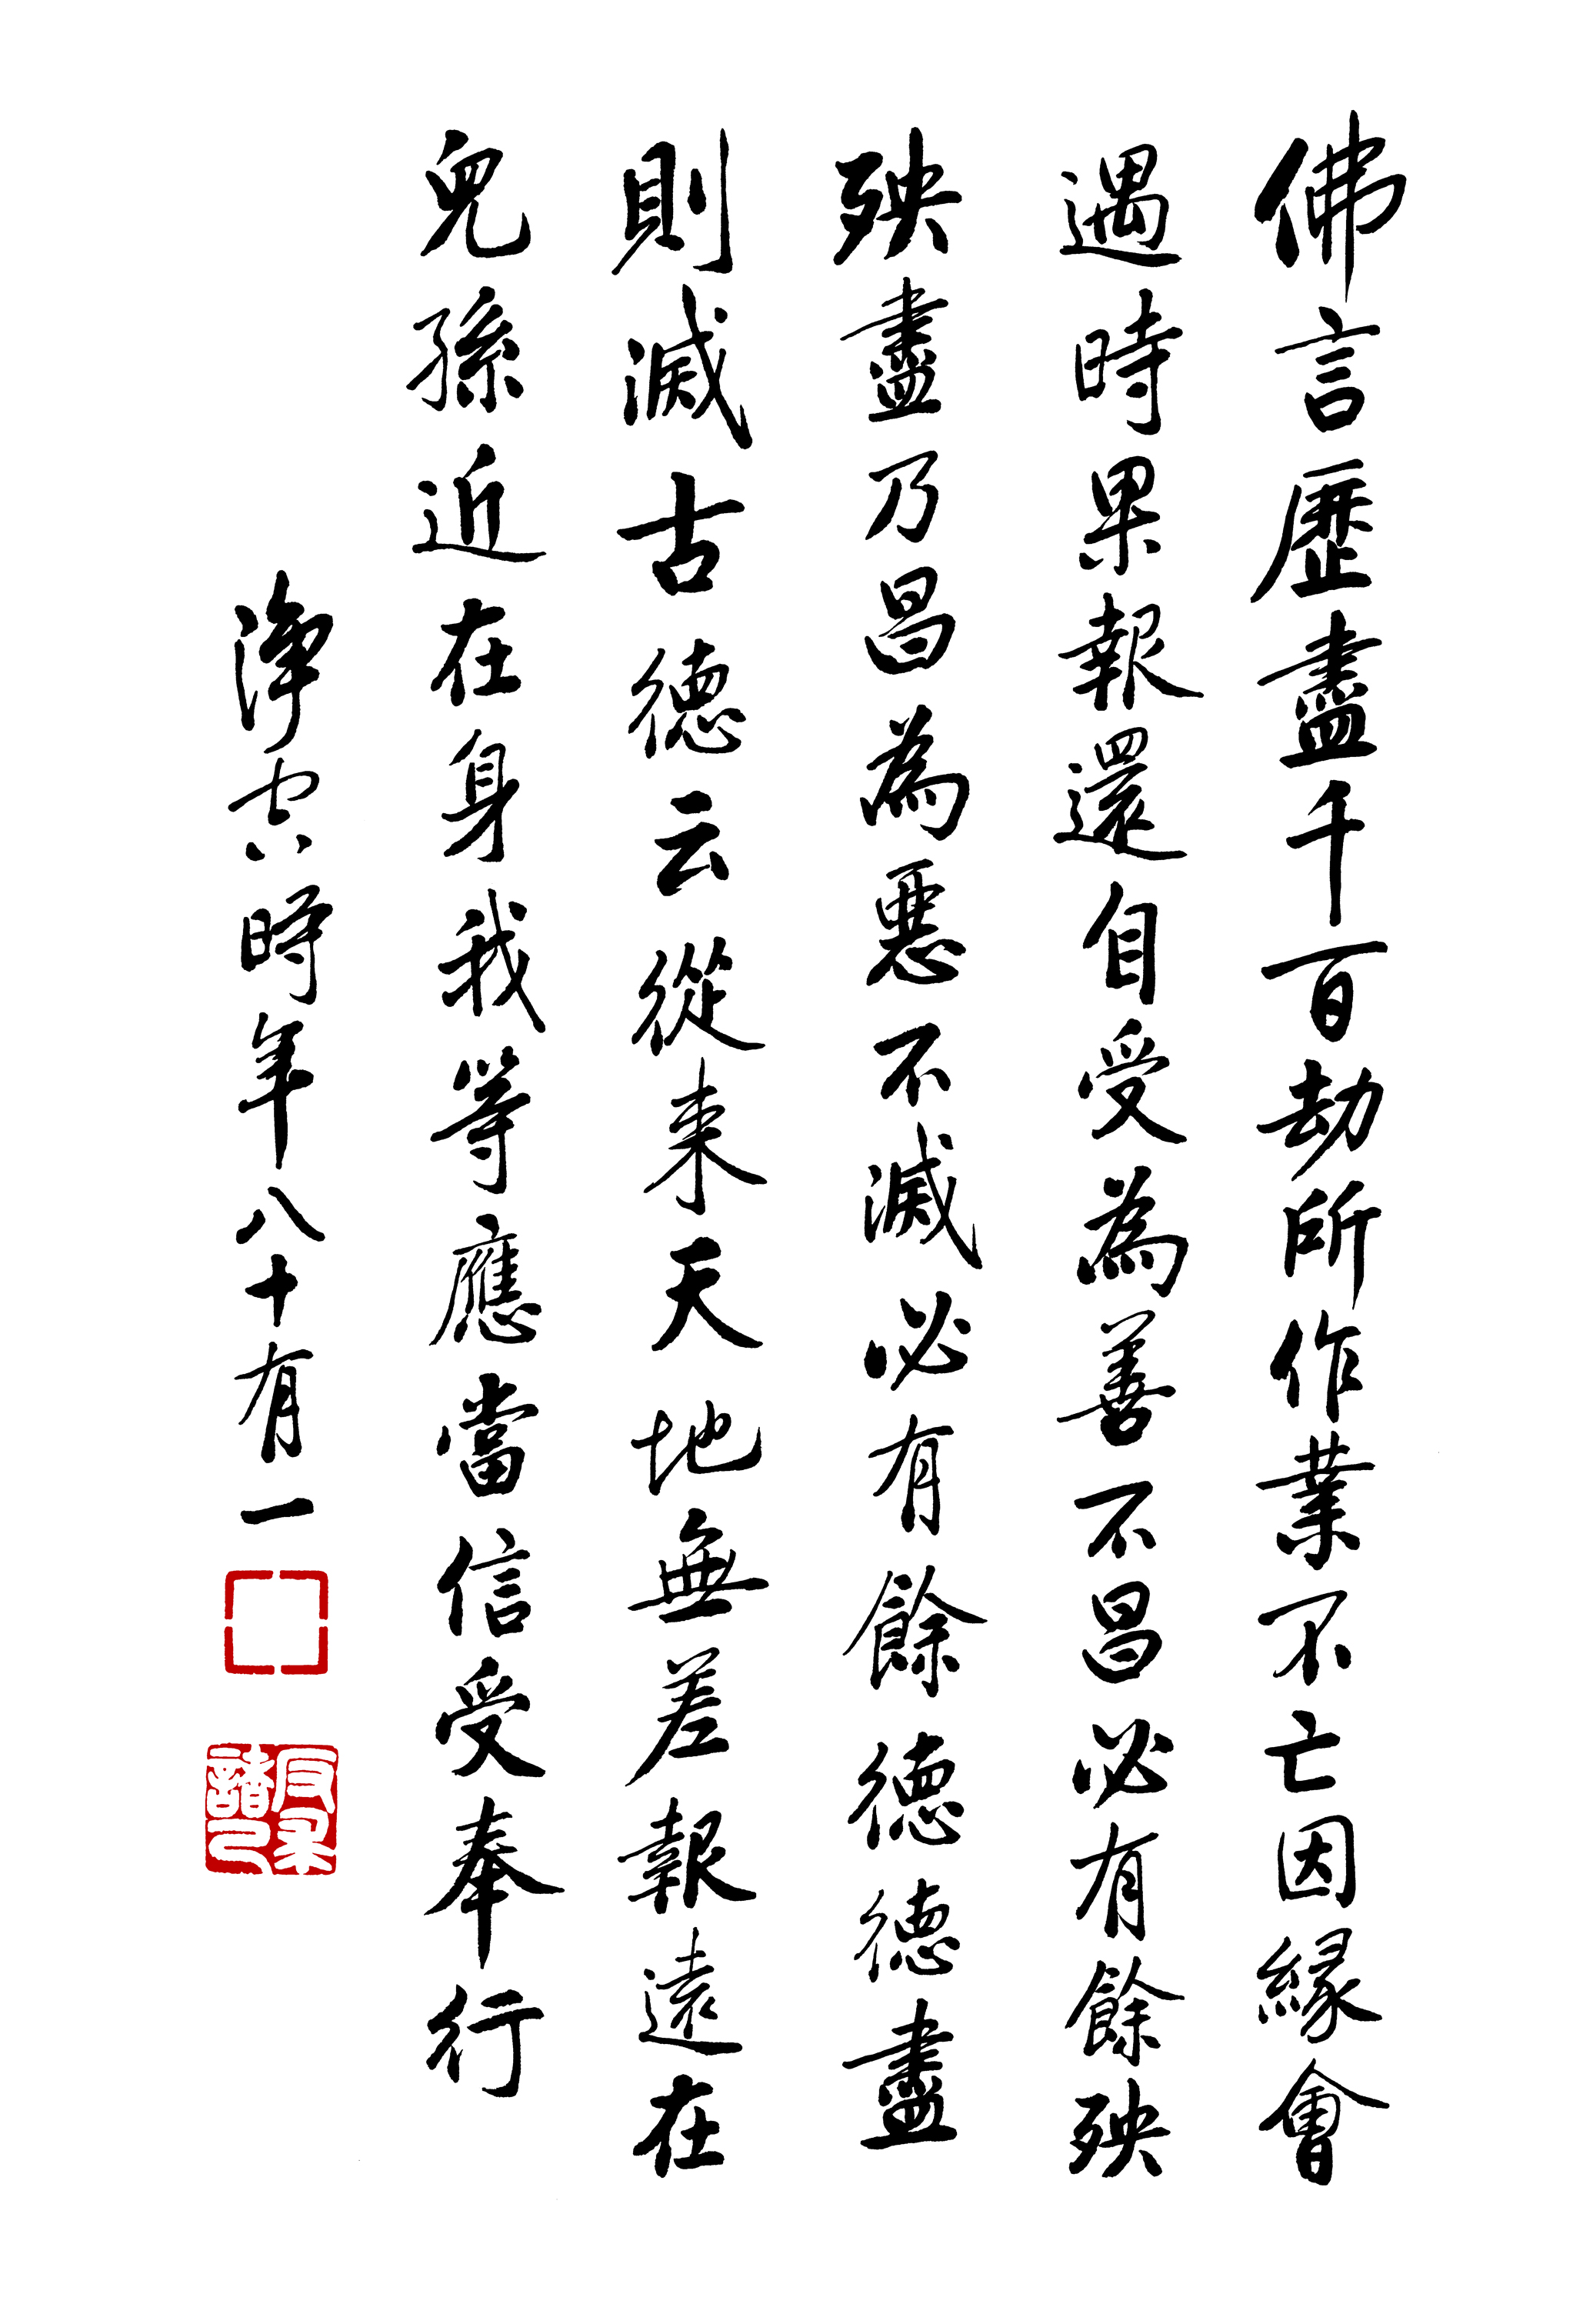 佛言歷盡千百劫所作業不亡因緣會
遇時果報還自受為善不昌必有餘殃
殃盡乃昌為惡不滅必有餘德德盡
則滅古德云從來天地無差報遠在
兒孫近在身我等應當信受奉行
淨空時年八十有一
反求
諸己